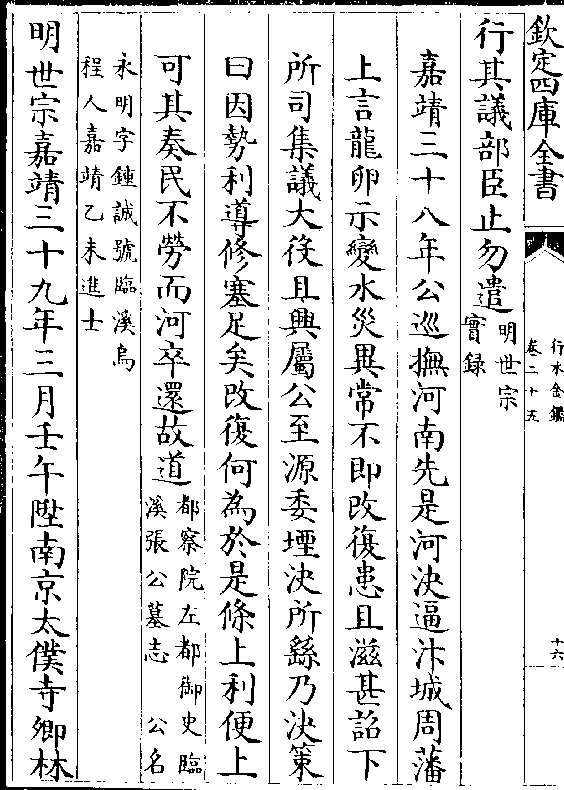 欽定四庫全書
行水金鑑
卷二十五
十六
行其議部臣止勿遣明世宗
實録
嘉靖三十八年公巡撫河南先是河決逼汴城周藩
上言龍卵示變水災異常不即改復患且滋甚詔下
所司集議大役且興屬公至源委堙決所繇乃決策
曰因勢利導修塞足矣改復何為於是條上利便上
可其奏民不勞而河卒還故道都察院左都御史臨
溪張公墓志 公名
永明字鍾誠號臨溪烏
程人嘉靖乙未進士
明世宗嘉靖三十九年三月壬午陞南京太僕寺卿林